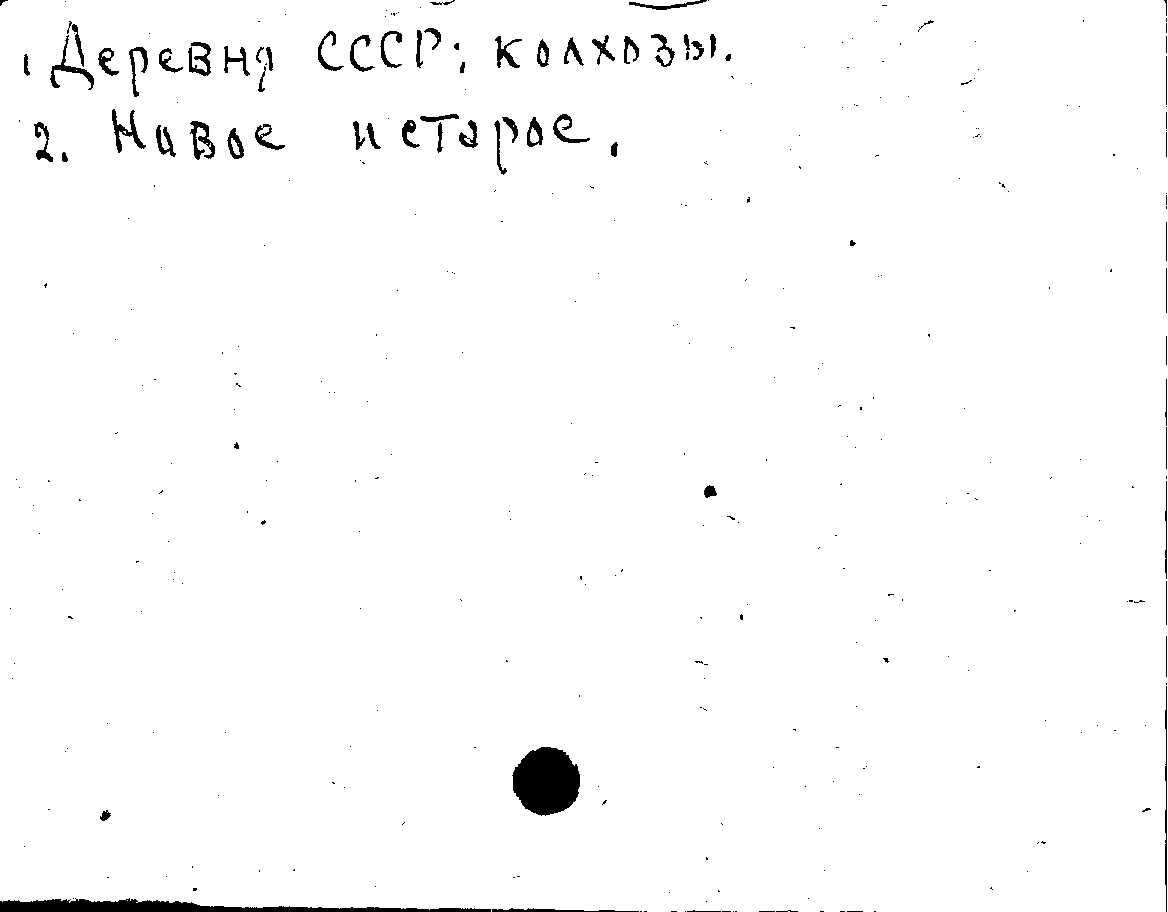 1 Деревня СССР; колхозы.
2. Новое и старое.